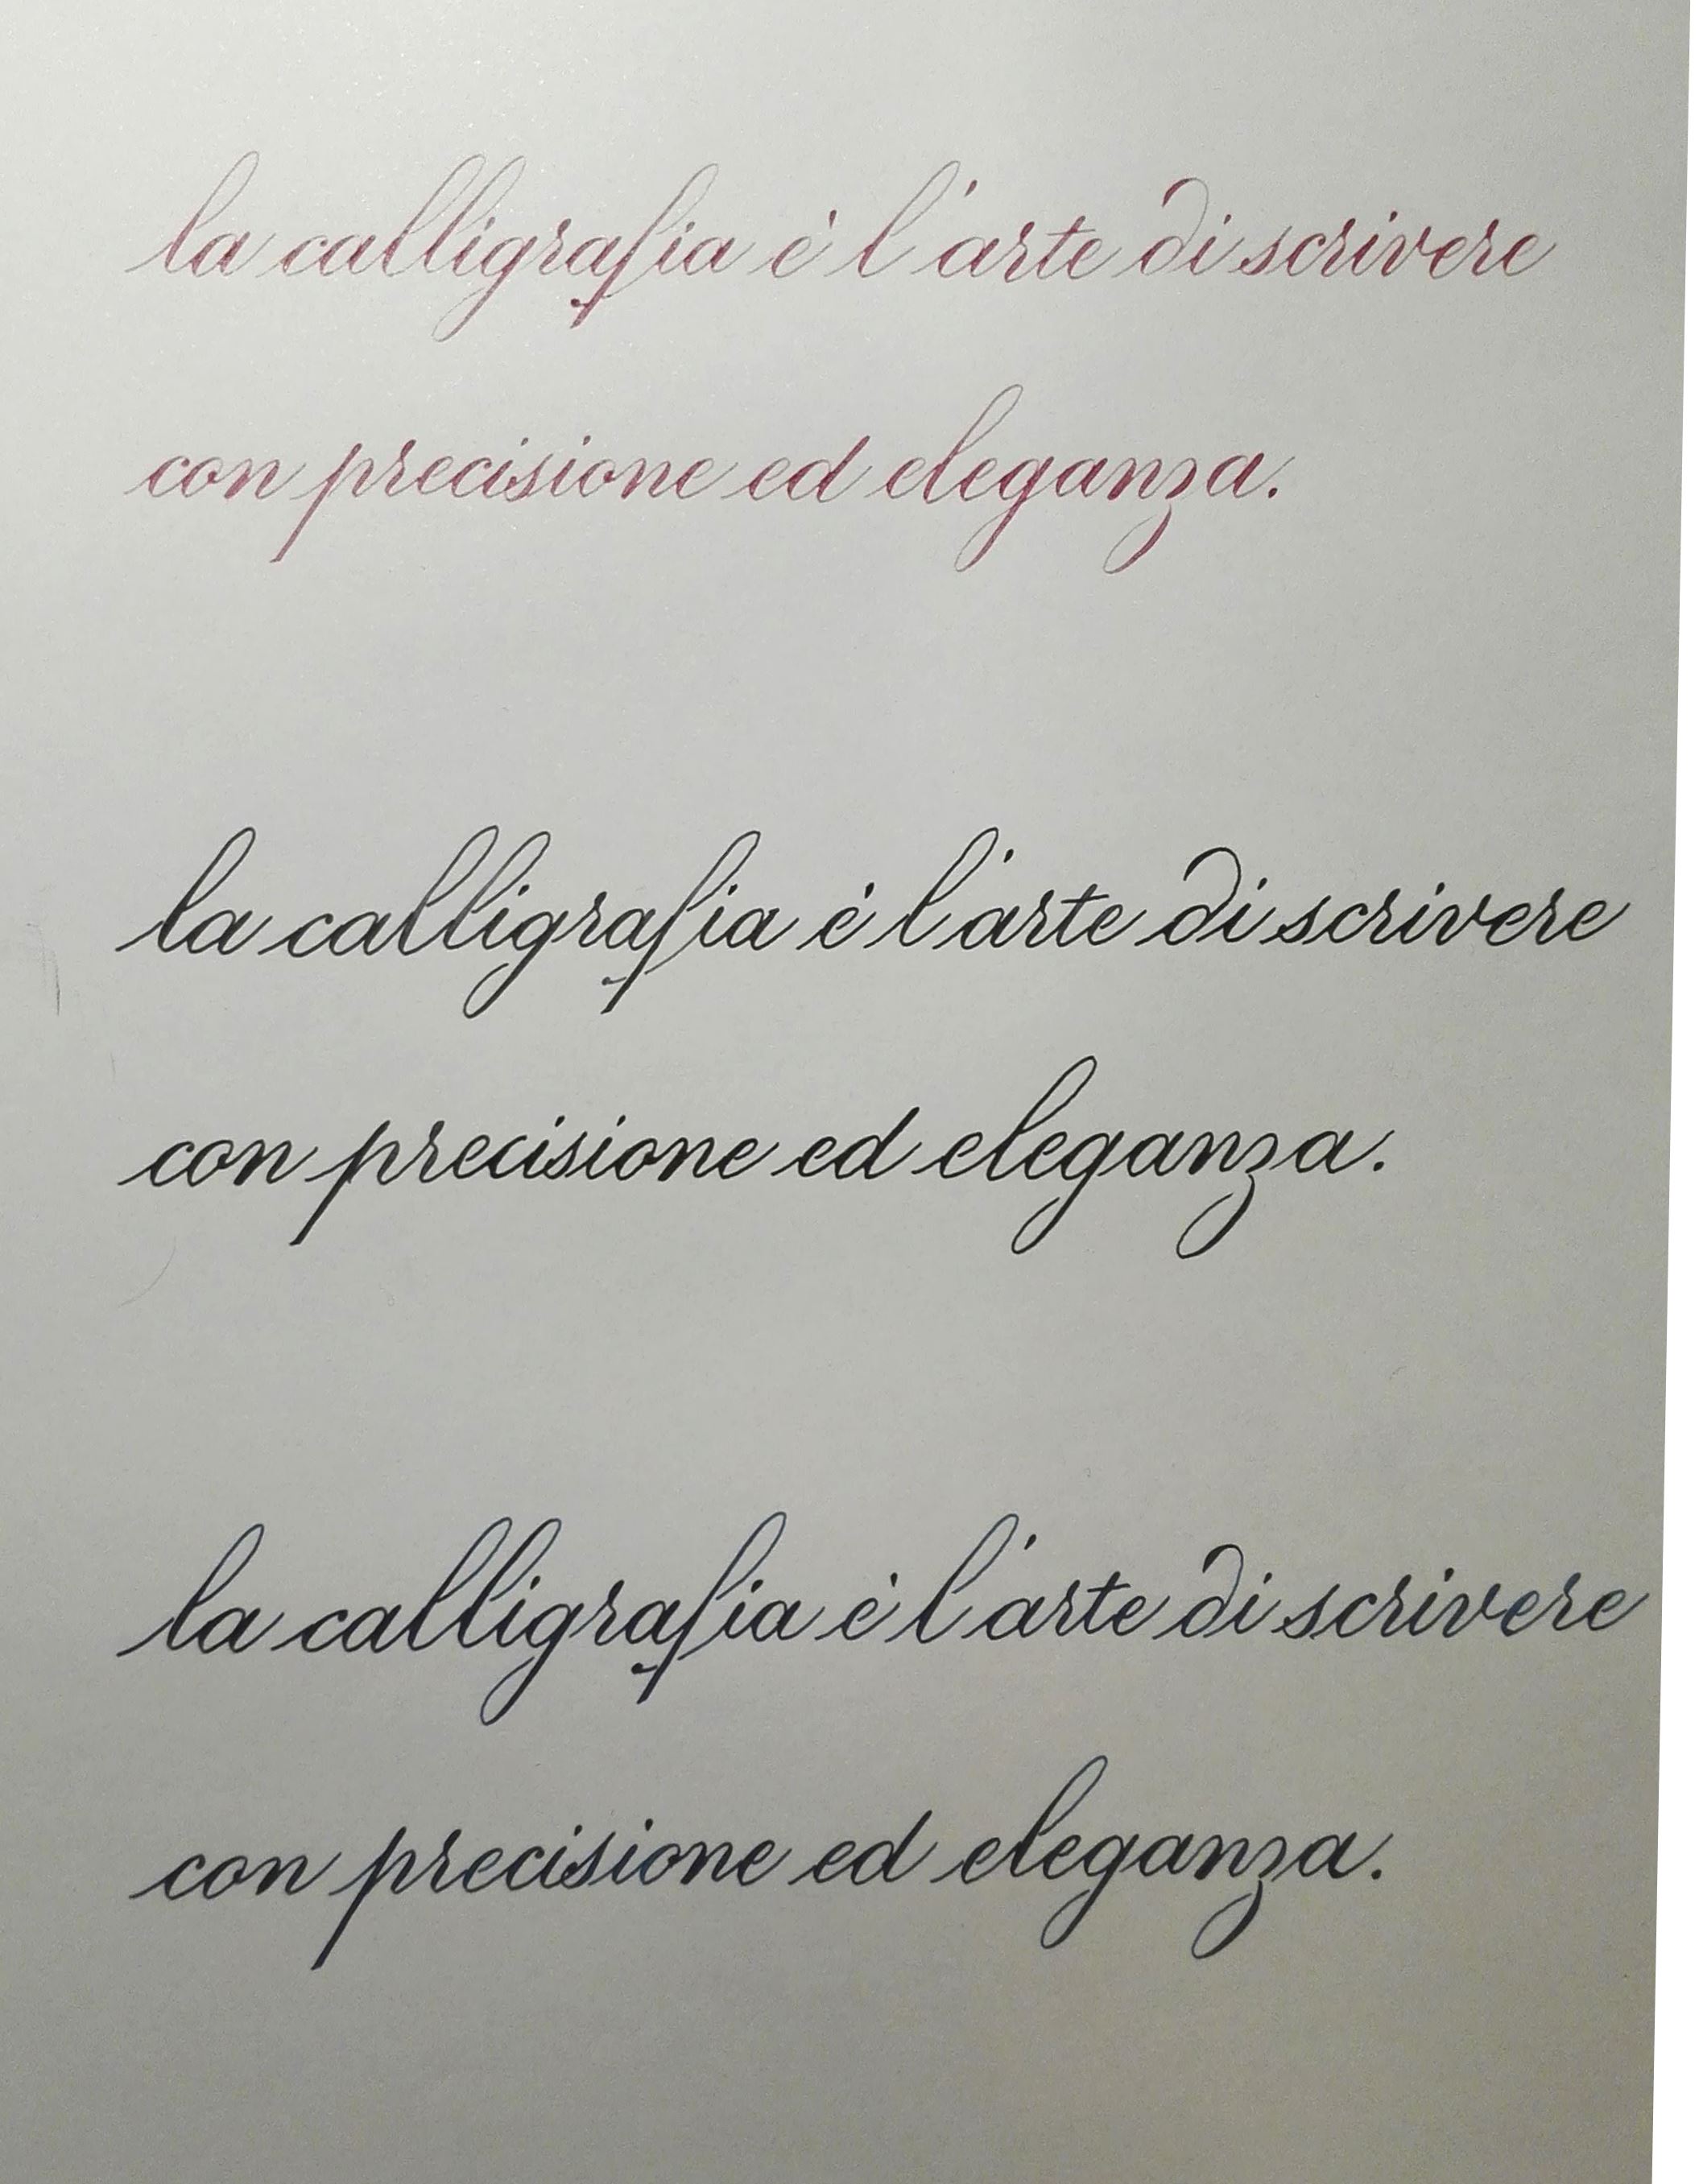 la calligrafia è l'arte di scrivere
con precisione ed eleganza.
la calligrafia è l'arte di scrivere
con precisione ed eleganza.
la calligrafia è l'arte di scrivere
con precisione ed eleganza.